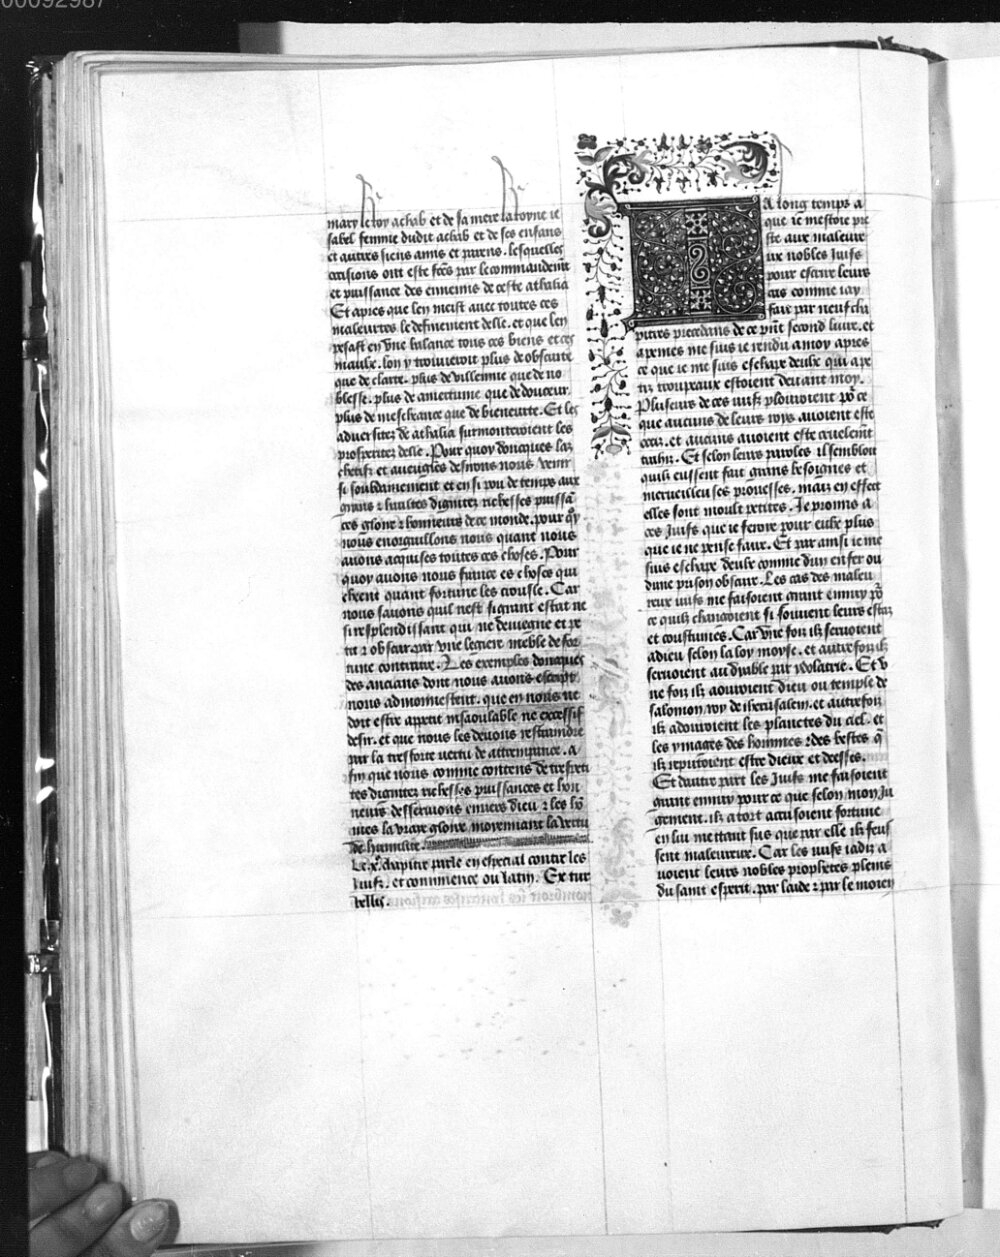 00092987
mary le roy achab et de sa mere la royne ie
sabel femme dudit achab et de ses enfans
et autres siens amis et parens. lesquelles
occisions ont este fces par le commandemt
et puissance des ennemis de ceste athalia
Et apres que len meist auec toutes ces
maleurtes le definement delle. et que len
pesast en vne balance tous ces biens et ces
maulx. lon y trouueroit plus de obscurte
que de clarte. plus de villennie que de no
blesse. plus de amertume que de doulceur.
plus de meschance que de bieneurte. Et les
aduersitez de athalia surmonteroient les
prosperitez delle. Pour quoy doncques las
chetifz et aueugles desirons nous venir
si soubdainement et en si pou de temps aux
grans z haultes dignitez richesses puissa
ces gloire z honneurs de ce monde. pour qy
nous enorguillons nous quant nous
auons acquises toutes ces choses. Pour
quoy auons nous fiance es choses qui
cheent quant fortune les crousle. Car
nous sauons quil nest si grant estat ne
si resplendissant qui ne deuiegne et pe
tit z obscur par vne legiere meslee de for
tune contraire. Les exemples doncques
des ancians dont nous auons escript
nous admonnestent. que en nous ne
doit estre appetit insaoulable ne excessif
desir. et que nous les deuons restraindre
par la tresforte vertu de attrempance. a
fin que nous comme contens de trespeti
tes dignitez richesses puissances et hon
neurs desseruions enuers dieu z les ho
mes la vraye gloire moyennant la vertu
de humilite.
Le xe. chapitre parle en especial contre les
Iuifz. et commence ou latin. Ex tur
bellis.
Ia long temps a
que ie mestoie pre
ste aux maleure
ux nobles Juifs
pour escrire leurs
cas comme iay
fait par neuf cha
pitres precedans de ce pnt second liure. et
apeines me suis ie rendu a moy apres
ce que ie me suis eschape deulx qui a pe
titz troupeaux estoient deuant moy.
Plusieurs de ces iuifz plouroient po ce
que aucuns de leurs roys auoient este
occis. et aucuns auoient este cruelemt
trahiz. Et selon leurs paroles il sembloit
quilz eussent fait grans besoignes et
merueilleuses prouesses. maiz en effect
elles sont moult petites. Je promis a
ces Juifs que ie feroie pour eulx plus
que ie ne pense faire. Et par ainsi ie me
suis eschape deulx comme dun enfer ou
dune prison obscure. Les cas des maleu
reux iuifs me faisoient grant ennuy po
ce quilz changoient si souuent leurs estaz
et coustumes. Car vne foiz ilz seruoient
a dieu selon la loy moyse. et autre foiz ilz
seruoient au dyable par ydolatrie. Et v
ne foiz ilz aouroient dieu ou temple de
salomon roy de iherusalem. et autre foiz
ilz adouroient les planetes du ciel. et
les ymages des hommes z des bestes q
ilz reputoient estre dieux et deesses.
Et dautre part les Juifs me faisoient
grant ennuy pour ce que selon mon ju
gement. ilz a tort accusoient fortune
en lui mettant sus que par elle ilz feus
sent maleureux. Car les iuifs iadiz a
uoient leurs nobles prophetes plems
du saint esperit. par laide z par le moien